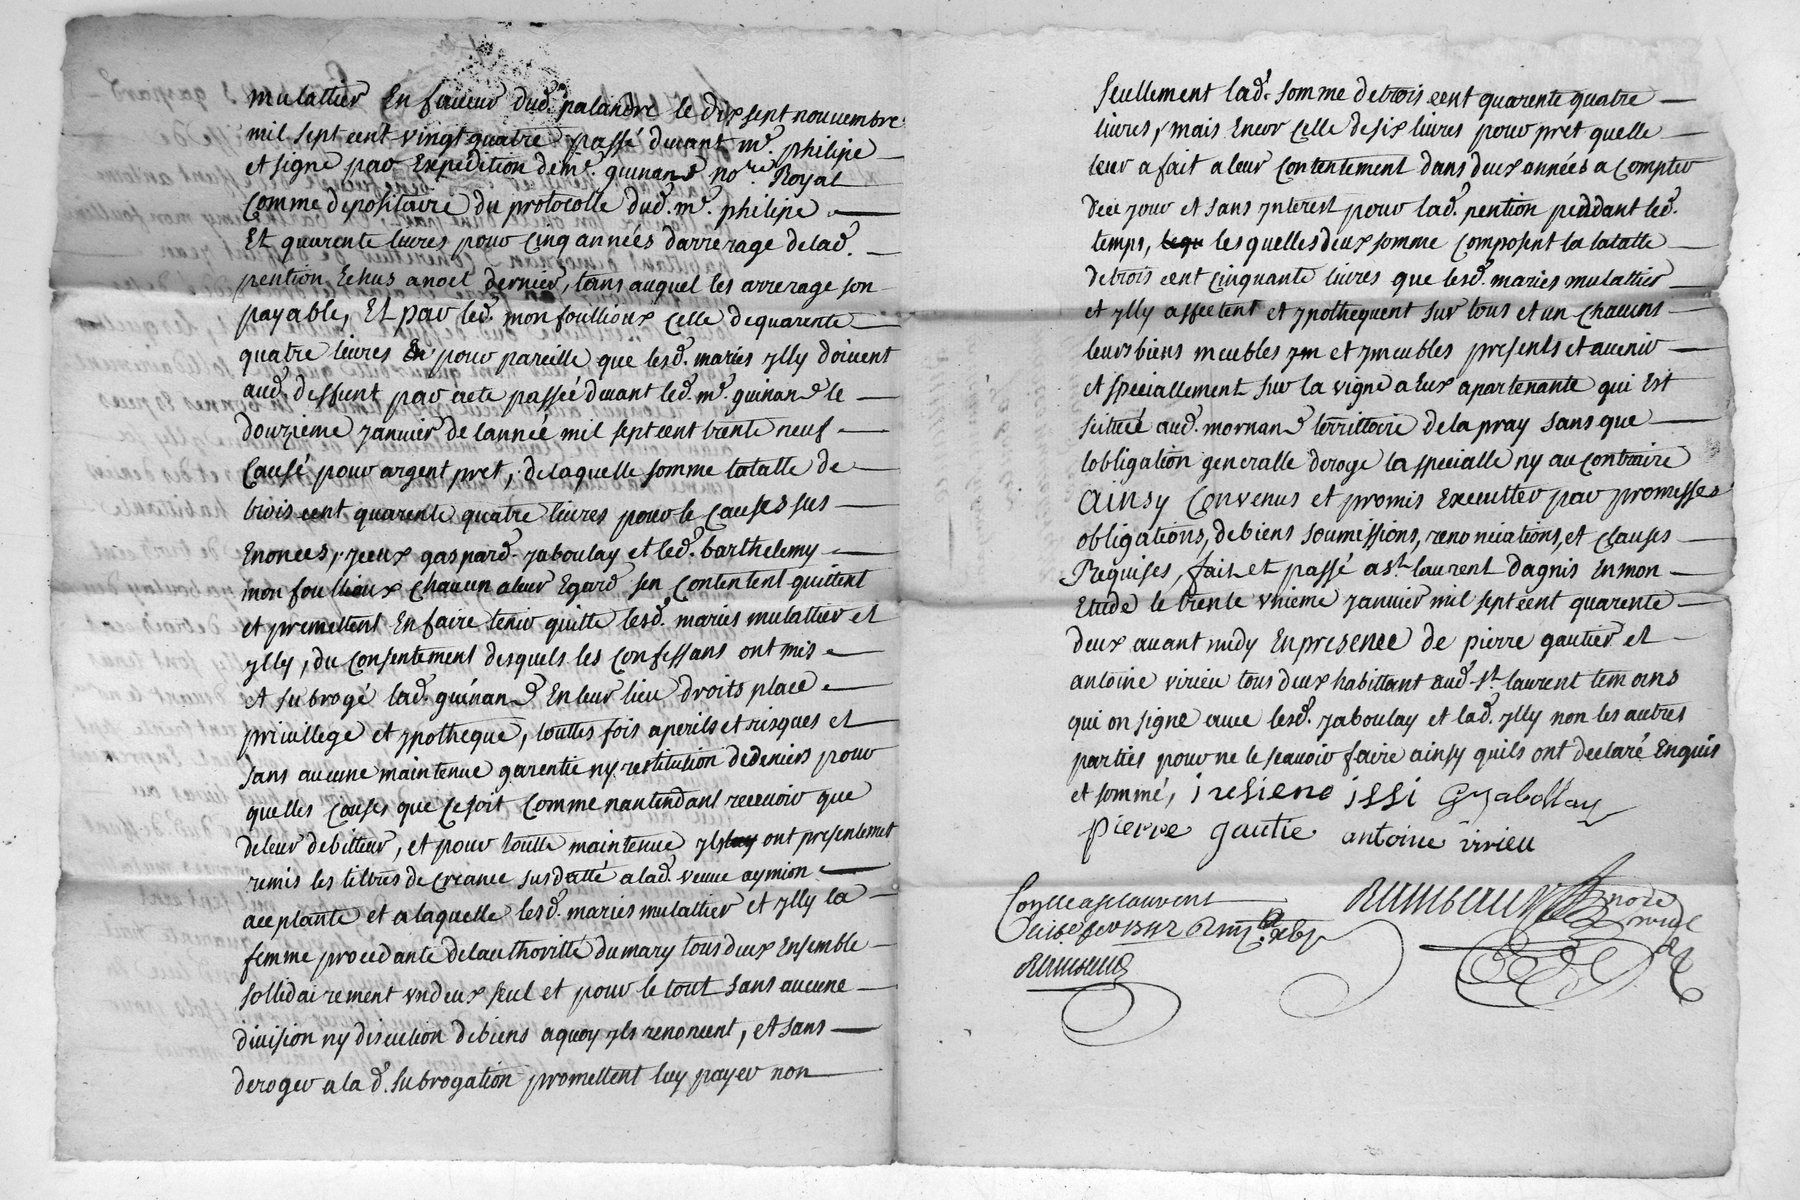 mulattier En faveur dud. palandre le dix sept nouvembre
mil sept cent vingt quatre passé devant me. philipe
et signé par Expedition de me. guinand nore. Royal
Comme depositaire du protocolle dud. me. philipe
Et quarente livres pour Cinq années darrerage de lad.
pention Echus a noel dernier, tems auquel les arrerage son
payable, Et par led. monfoullioux Celle de quarente
quatre livres pour pareille que lesd. mariés ylly doivent
aud. deffunt par acte passée devant led. me. guinand le
douzieme janvier de lannée mil sept cent trente neuf
Causé pour argent pret, de laquelle somme totalle de
trois cent quarente quatre livres pour le Causes sus
Enoncés, yceux gaspard jaboulay et led. barthelemy
monfoullioux chacun a leur Egard sen contentent quittent
et promettent En faire tenir quitte lesd. mariés mulattier et
ylly, du Consentement desquels les Confessans ont mis
et subrogé lad. guénand En leur lieu droits place
privillege et ypotheque, touttes fois a perils et risques et
sans aucune maintenue garentie ny restitution de deniers pour
quelles Causes que ce soit Comme nantendant recevoir que
de leur debitteur, et pour toutte maintenue yls ont presentemt
remis les titres de Creance susdatté a lad. veuve aymion
aceptante et a laquelle lesd. mariés mulattier et ylly la
femme procedante de lauthoritté du mary tous deux Ensemble
sollidairement un deux seul et pour le tout sans aucune
division ny discution de biens a quoy yls renoncent, et sans
deroger a la d. subrogation promettent luy payer non
seullement lad. somme de trois cent quarente quatre
livres, mais Encor Celle de six livres pour pret quelle
leur a fait a leur Contentement dans deux années a Compter
de ce jour et sans ynterest pour lad. pention pendant led.
temps, lesquelles deux somme Composent la totalle
de trois cent cinquante livres que lesd. mariés mulattier
et ylly affectent et ypothequent sur tous et un chacuns
leurs biens meubles ym et ymeubles presents et avenir
et speciallement sur la vigne a Eux apartenante qui Est
scituée aud. mornand territtoire de la pray sans que
lobligation generalle deroge la specialle ny au Contraire
Ainsy Convenus et promis Executter par promesses
obligations, de biens soumissions, renonciations, et clauses
Requises, fait et passé a st. laurent dagnis En mon
Etude le trente unieme janvier mil sept cent quarente
deux avant midy En presence de pierre gautier et
antoine virieu tous deux habittant aud. st. laurent temoins
qui on signe avec lesd. jaboulay et lad. ylly non les autres
parties pour ne le scavoir faire ainsy quils ont declaré Enquis
et sommé, issi G jabollay
pierre gautie antoine virieu